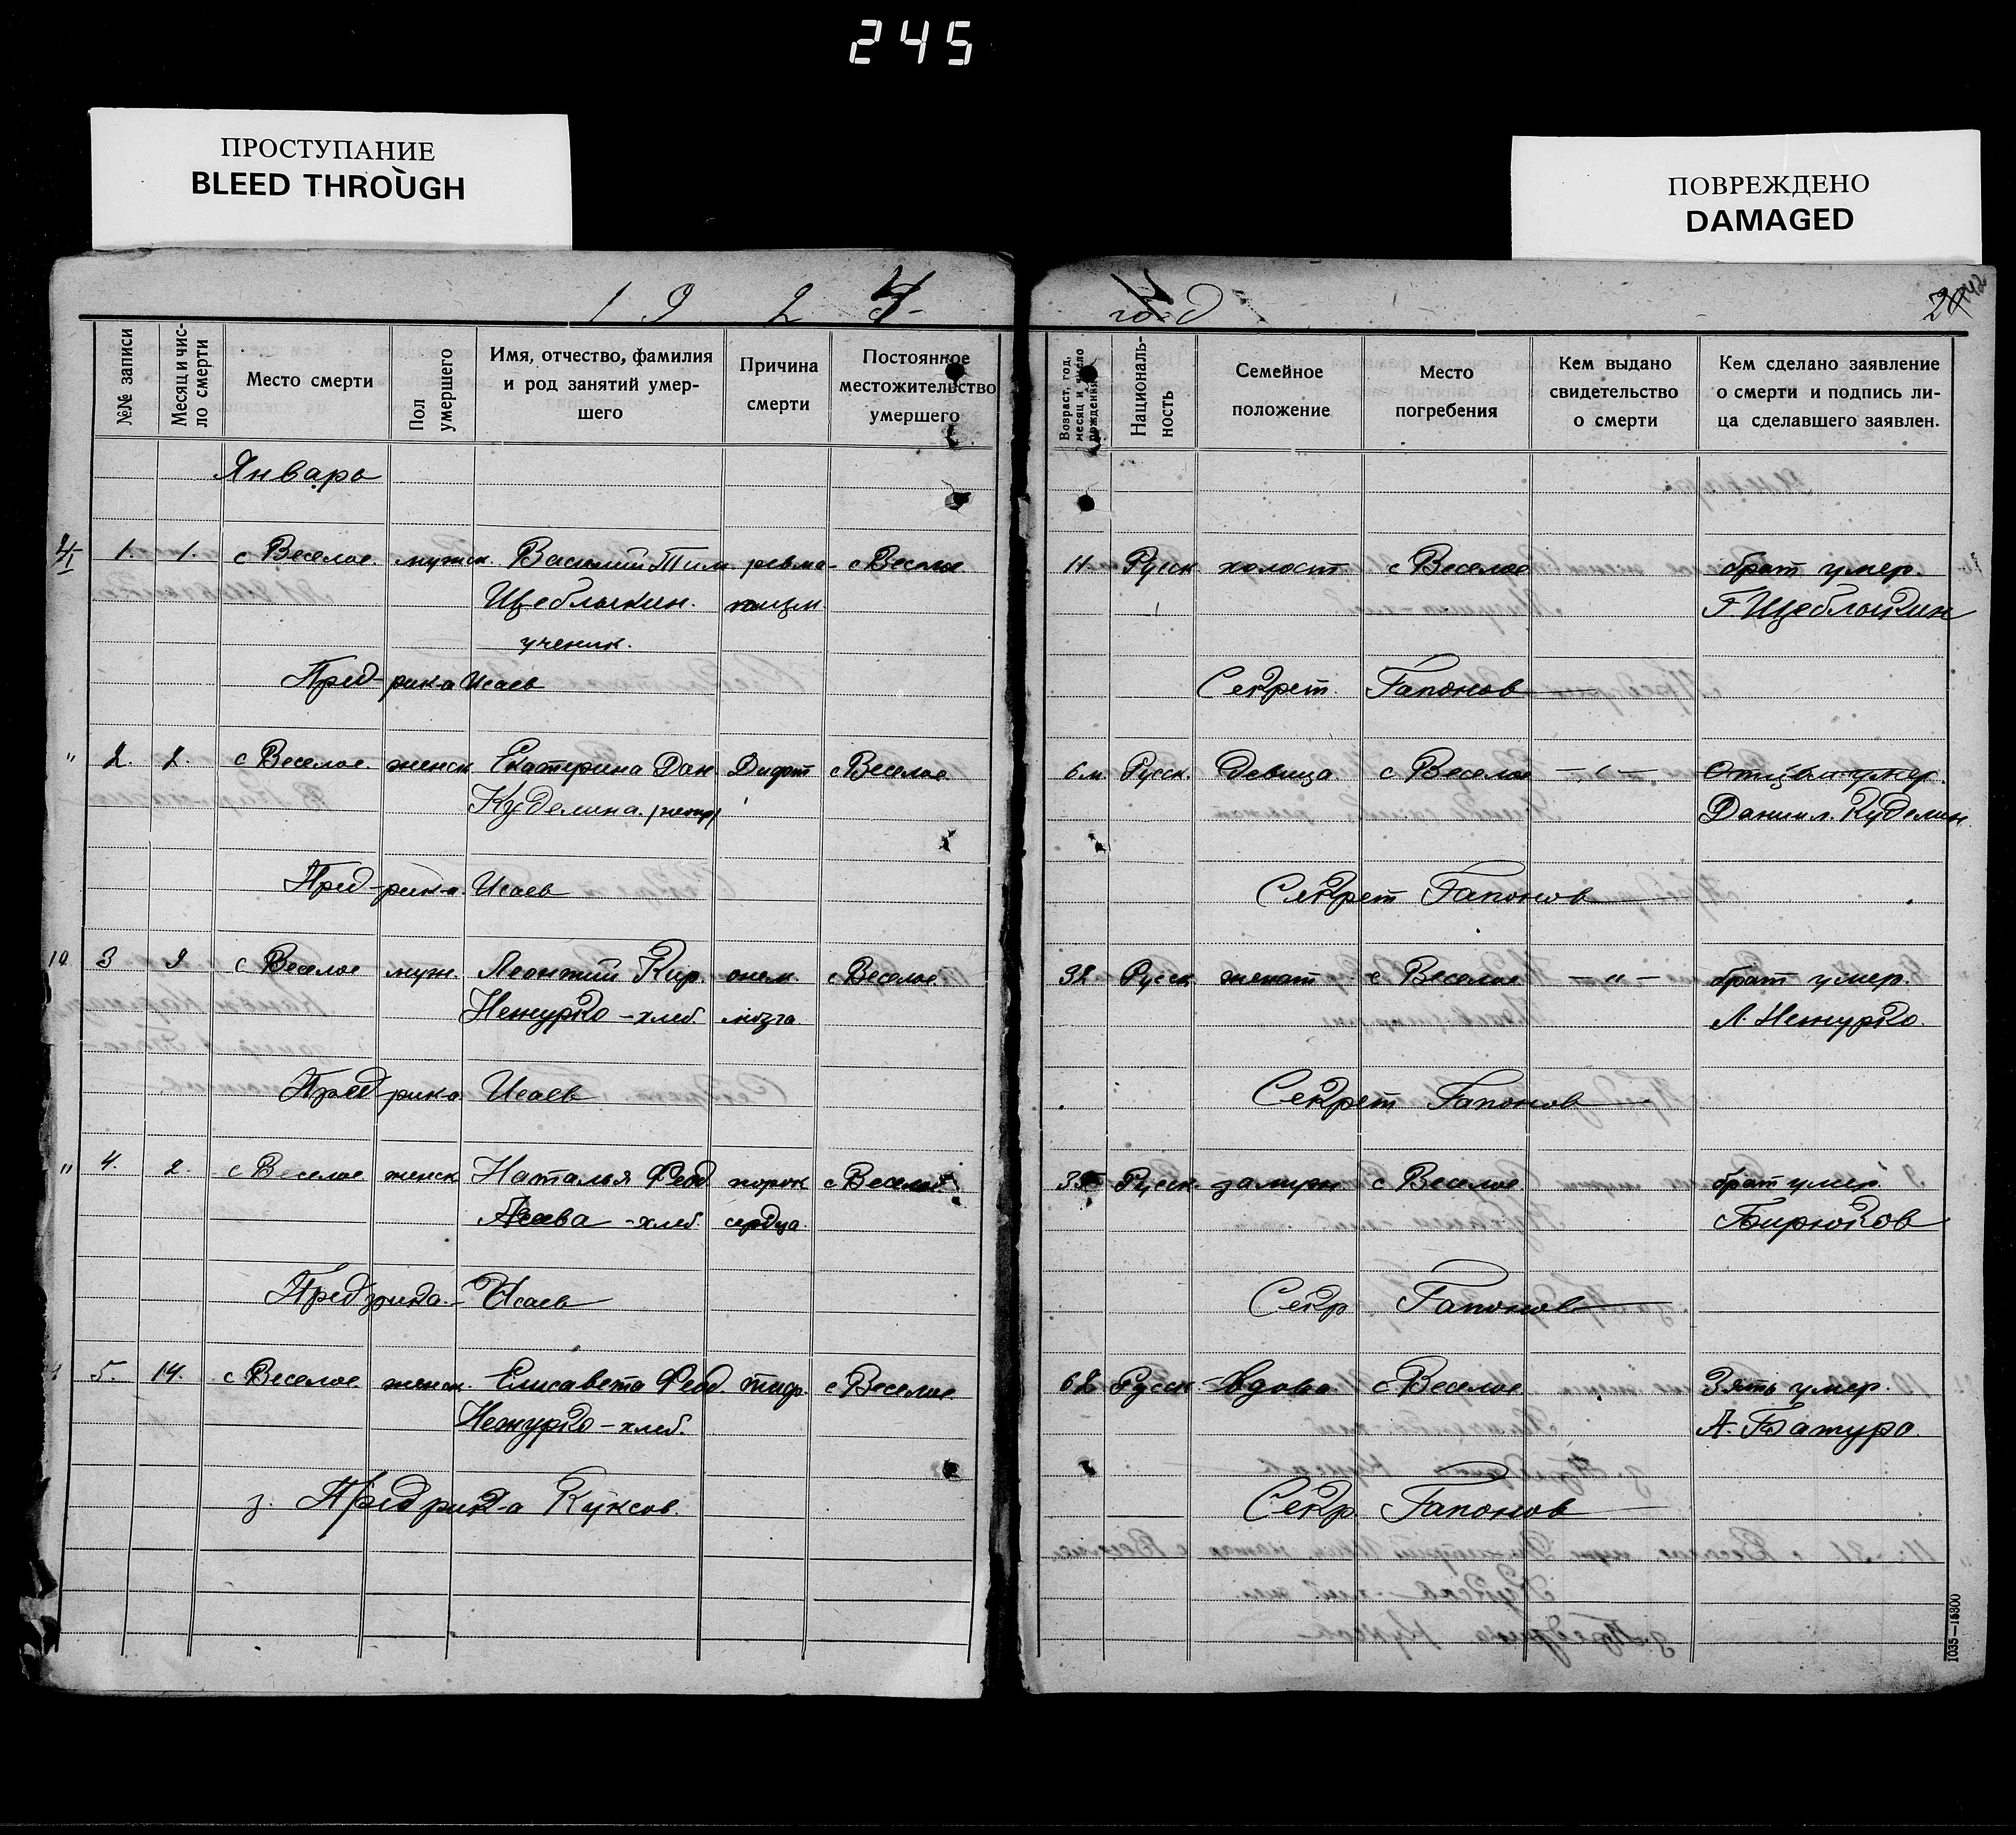 245
ПРОСТУПАНИЕ
BLEED THROUGH
ПОВРЕЖДЕНО
DAMAGED
1 9 2 4 год
№№ записи
Месяц и число смерти
Место смерти
Пол умершего
Имя, отчество, фамилия и род занятий умершего
Причина смерти
Постоянное местожительство умершего
Возраст, год, месяц и число рождения
Националь-ность
Семейное положение
Место погребения
Кем выдано свидетельство о смерти
Кем сделано заявление о смерти и подпись ли-ца сделавшего заявлен.
Январь
1. 1. с Веселое. мужск. Василий Тим. ревма- с Веселое 11 Русск холост. с Веселое брат умер.
Щеблыкин. тизм Г. Щеблыкин
ученик.
Пред-рик-а Исаев Секрет. Гапонов
" 2. 2. с Веселое. женск Екатерина Дан. с Веселое 6 м. Русск. девица с Веселое — " — умер.
Куделина. Даниил. Куделин.
Пред-рик-а. Исаев Секрет Гапонов
10 3 9 с Веселое муж. Леонтий Кир. онем. с Веселое. 32 Русск женат с Веселое — " — брат умер.
Нежурко - хлеб. мозга. Л. Нежурко.
Пред рик-а Исаев Секрет Гапонов
" 4. 2. с Веселое женск Наталья Феод порок с Веселое Русск. замужн. с Веселое брат умер.
- хлеб. сердца. Бирюков
Пред рика. - Исаев Секр Гапонов
5. 14. с Веселое. женск. Елисавета Феод. тиф. с Веселое 62 Русск Вдова. с Веселое Зять умер.
Нежурко - хлеб. А. Батура.
з. Пред рик-а Куксов. Секр Гапонов
1035—15300